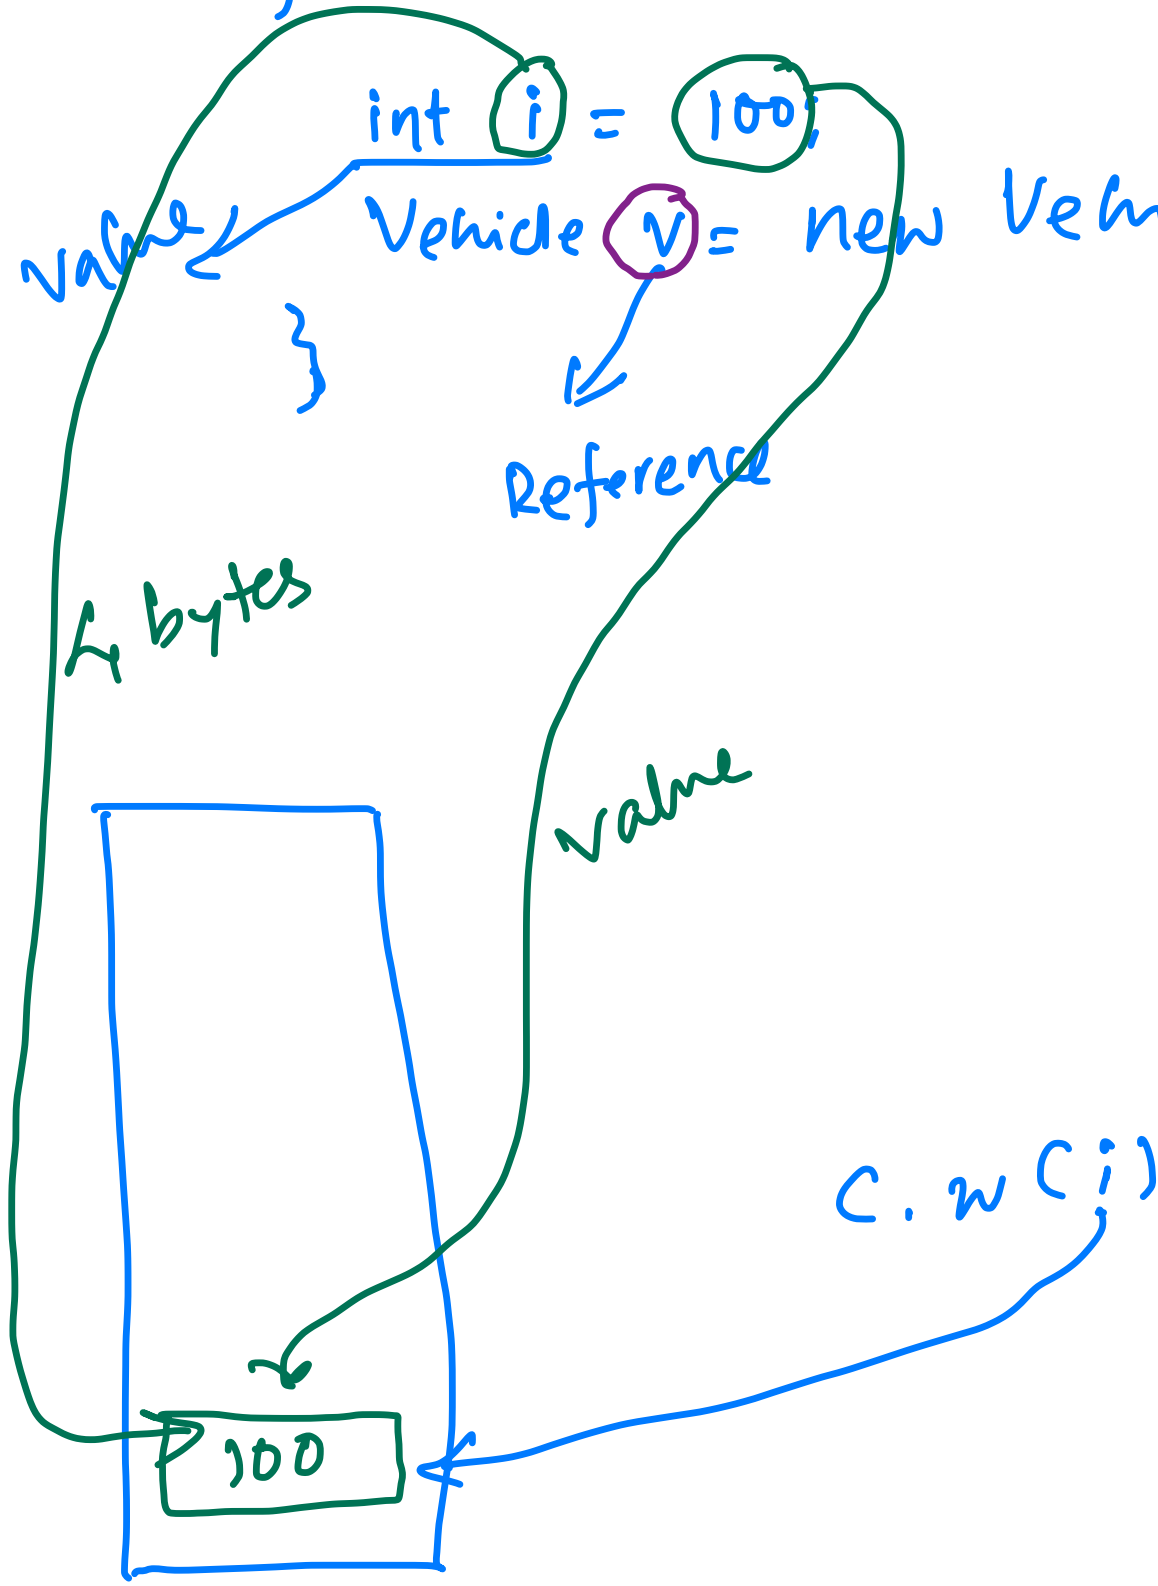 int i = 100;
Vehicle v = new Veh
value
}
Reference
4 bytes
value
C.W(i)
100